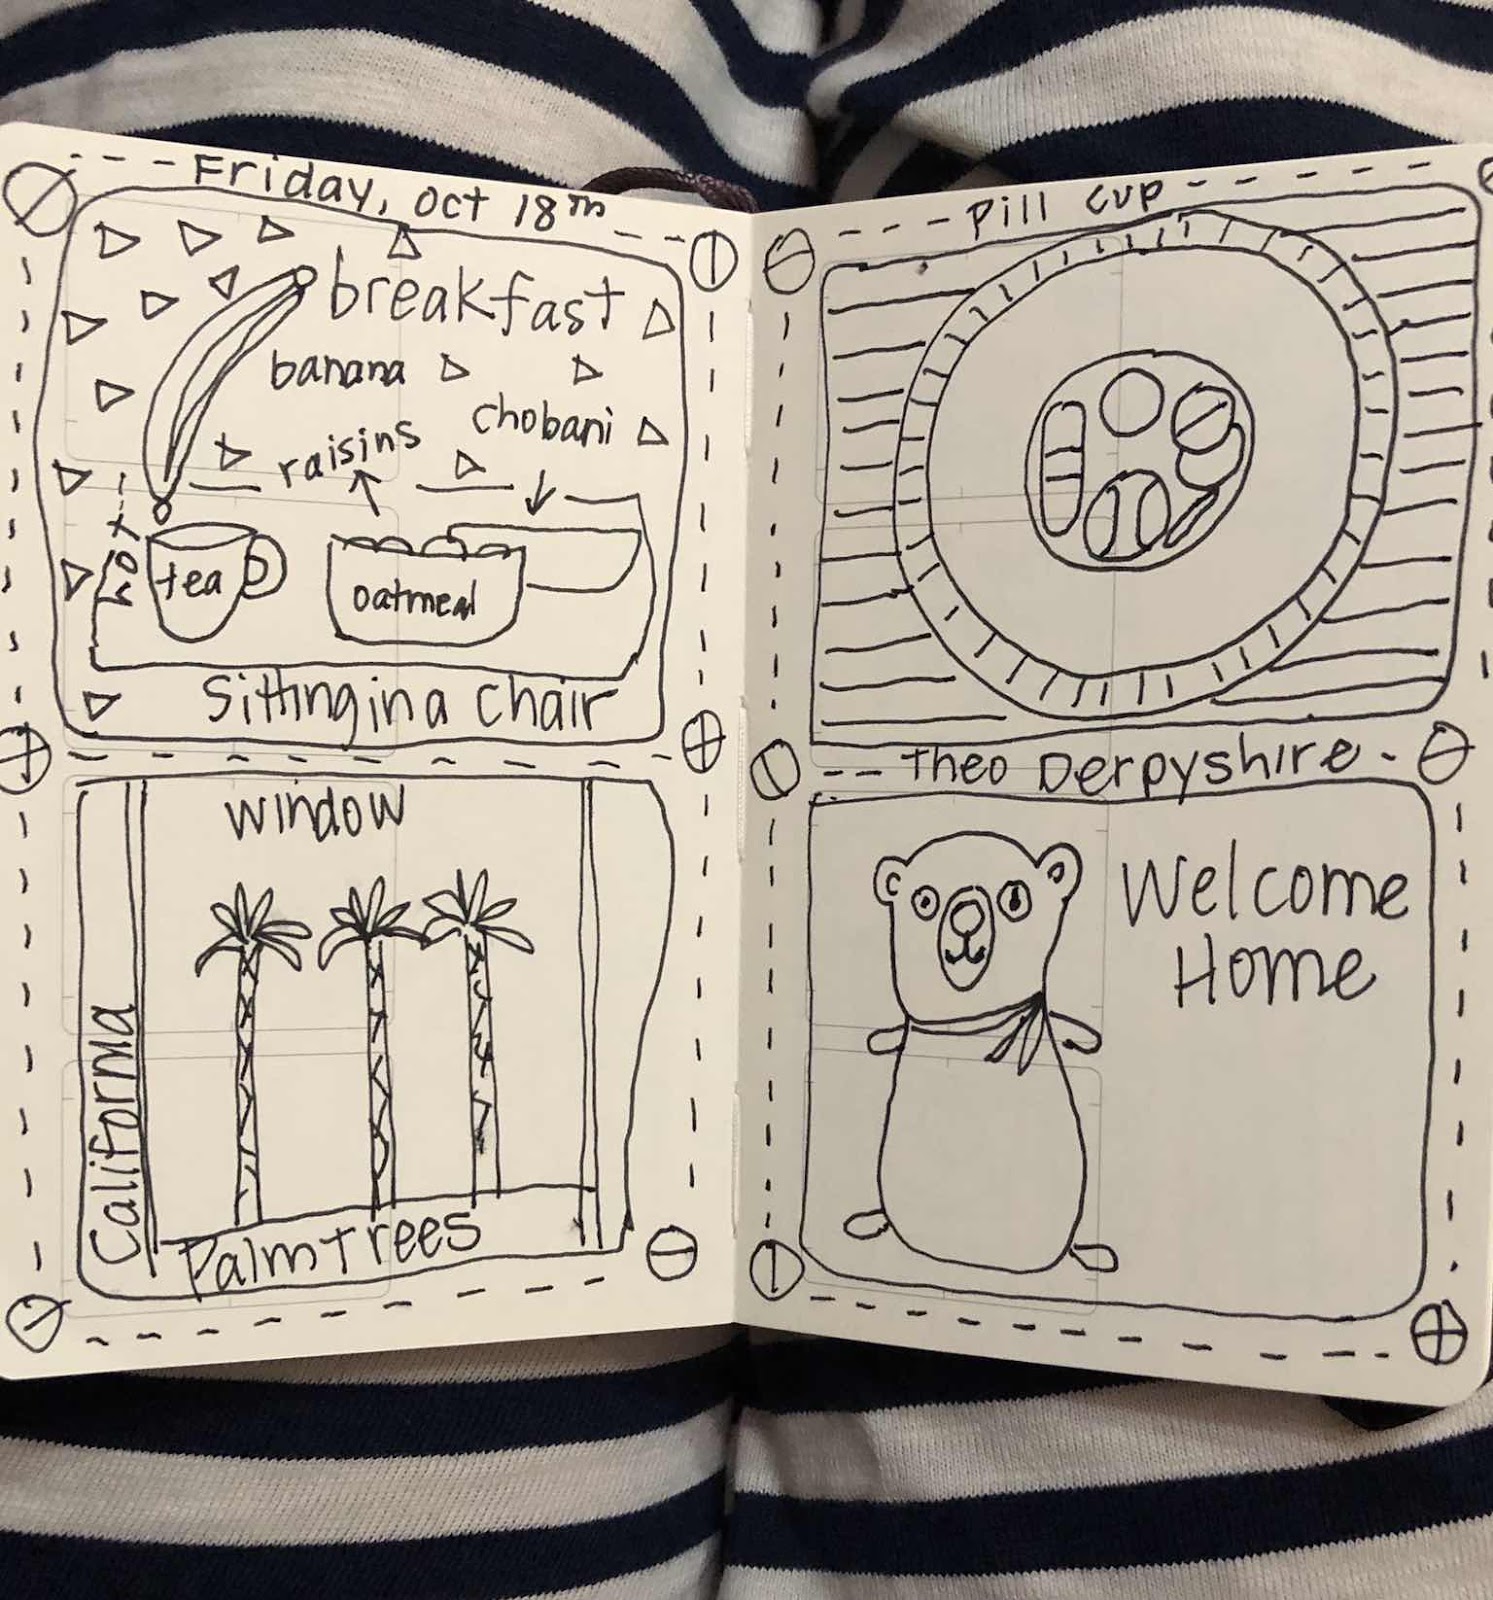 Friday, Oct 18th
breakfast
banana
chobani
raisins
HOT
tea
oatmeal
Sitting in a chair
window
California
Palm trees
Pill cup
Theo Derpyshire
Welcome
Home